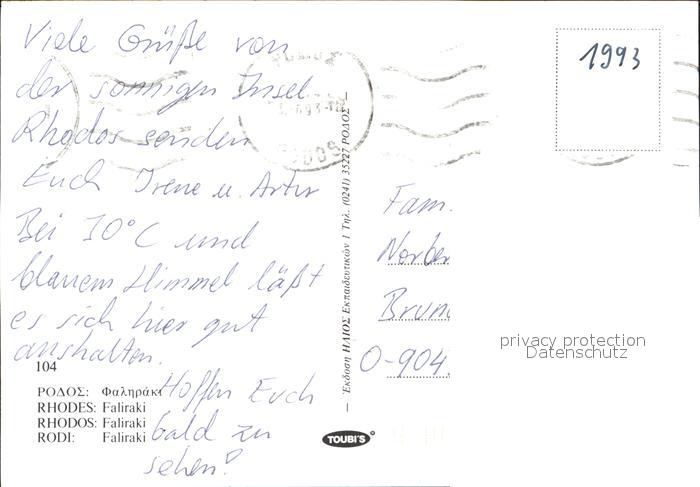 Viele Grüße von
der sonnigen Insel
Rhodos senden
Euch Irene u. Artur
Bei 30°C und
blauem Himmel läßt
es sich hier gut
aushalten.
Hoffen Euch
bald zu
sehen!
104
ΡΟΔΟΣ: Φαληράκι
RHODES: Faliraki
RHODOS: Faliraki
RODI: Faliraki
Ἔκδοση ΗΛΙΟΣ Εκπαιδευτικών 1 Τηλ. (0241) 35227 ΡΟΔΟΣ
TOUBI'S
1993
Fam.
Norber
Brun
O-904
privacy protection
Datenschutz